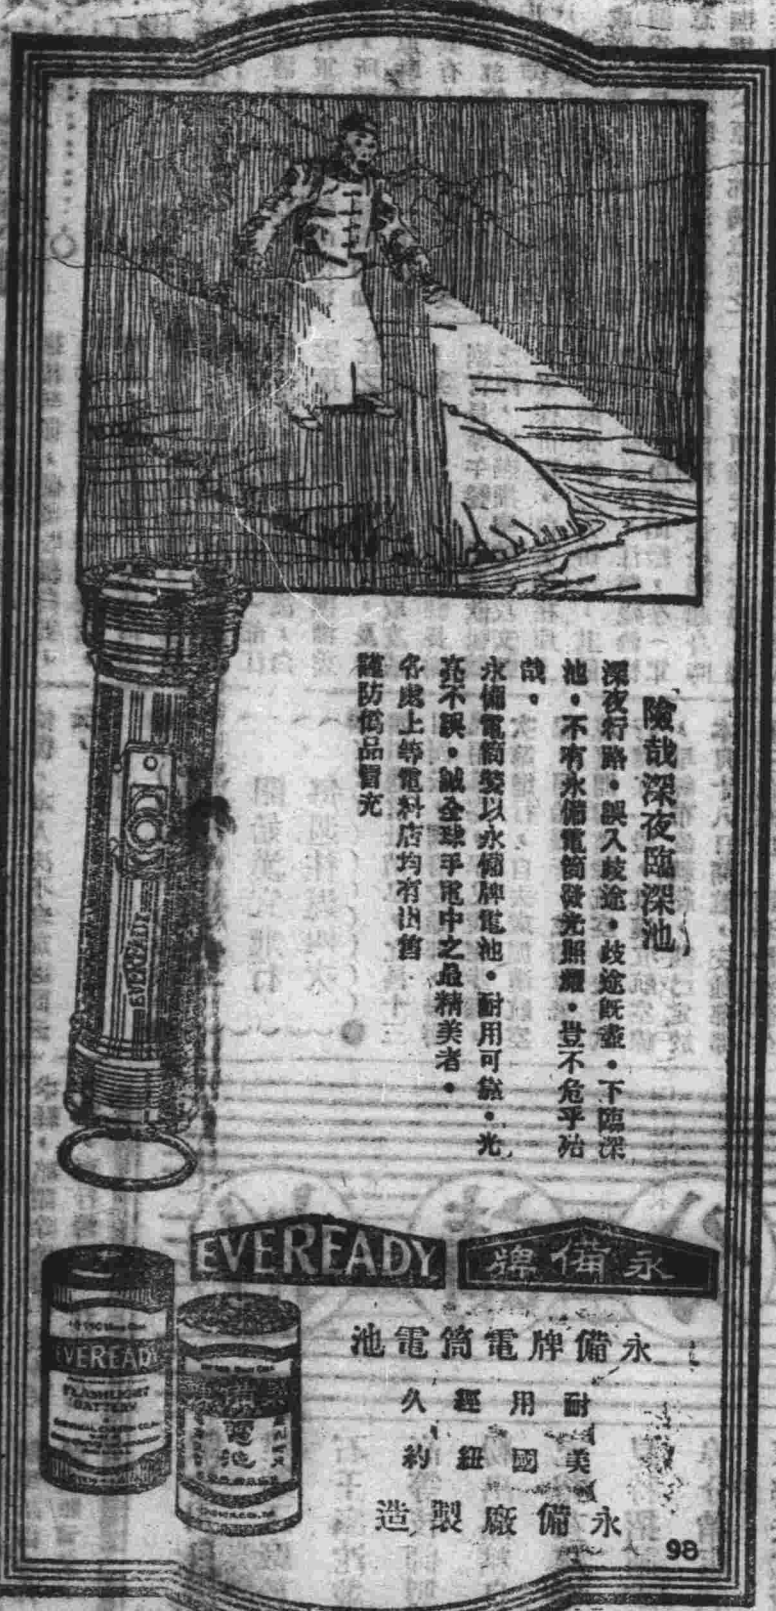 「險哉深夜臨深池」
深夜行路。誤入歧途。歧途既盡。下臨深
池。不有永備電筒發光照耀。豈不危乎殆
哉。
永備電筒裝以永備牌電池。耐用可靠。光
亮不誤。誠全球手電中之最精美者。
各處上等電料店均有出售
謹防僞品冒充
EVEREADY
EVEREADY
永備牌
永備牌電筒電池
耐用經久
美國紐約
永備廠製造
EVEREADY
FLASHLIGHT
BATTERY
電池
98